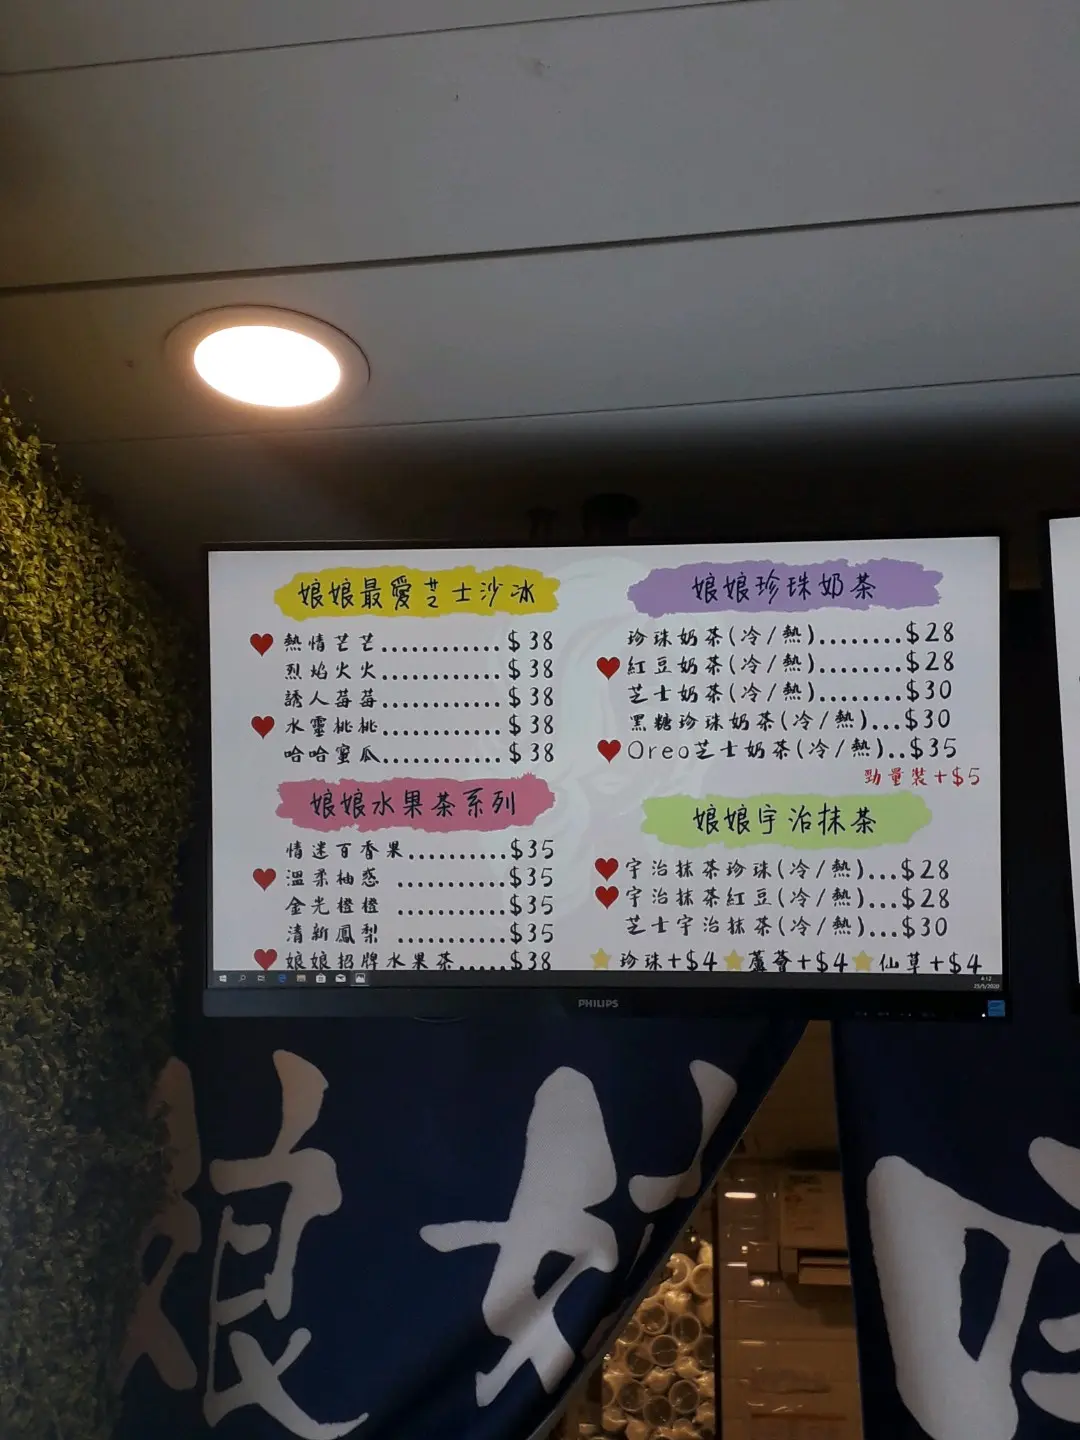 娘娘最愛芝士沙冰
熱情芒芒............$38
烈焰火火............$38
誘人莓莓............$38
水靈桃桃............$38
哈哈蜜瓜............$38
娘娘水果茶系列
情迷百香果..........$35
溫柔柚惑 ...........$35
金光橙橙 ...........$35
清新鳳梨 ...........$35
娘娘招牌水果茶.....$38
娘娘珍珠奶茶
珍珠奶茶(冷/熱)........$28
紅豆奶茶(冷/熱)........$28
芝士奶茶(冷/熱)........$30
黑糖珍珠奶茶(冷/熱)...$30
Oreo芝士奶茶(冷/熱)..$35
勁量裝+$5
娘娘宇治抹茶
宇治抹茶珍珠(冷/熱)...$28
宇治抹茶紅豆(冷/熱)...$28
芝士宇治抹茶(冷/熱)...$30
珍珠+$4 蘆薈+$4 仙草+$4
4:12
23/5/2020
PHILIPS
娘